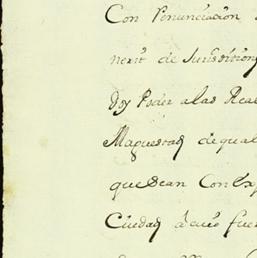 Con Renunciacion
neril de Jurisdicion
doy Poder a las Rea
Magestad de qual
que Sean Con Exp
Ciudad à cuio fue